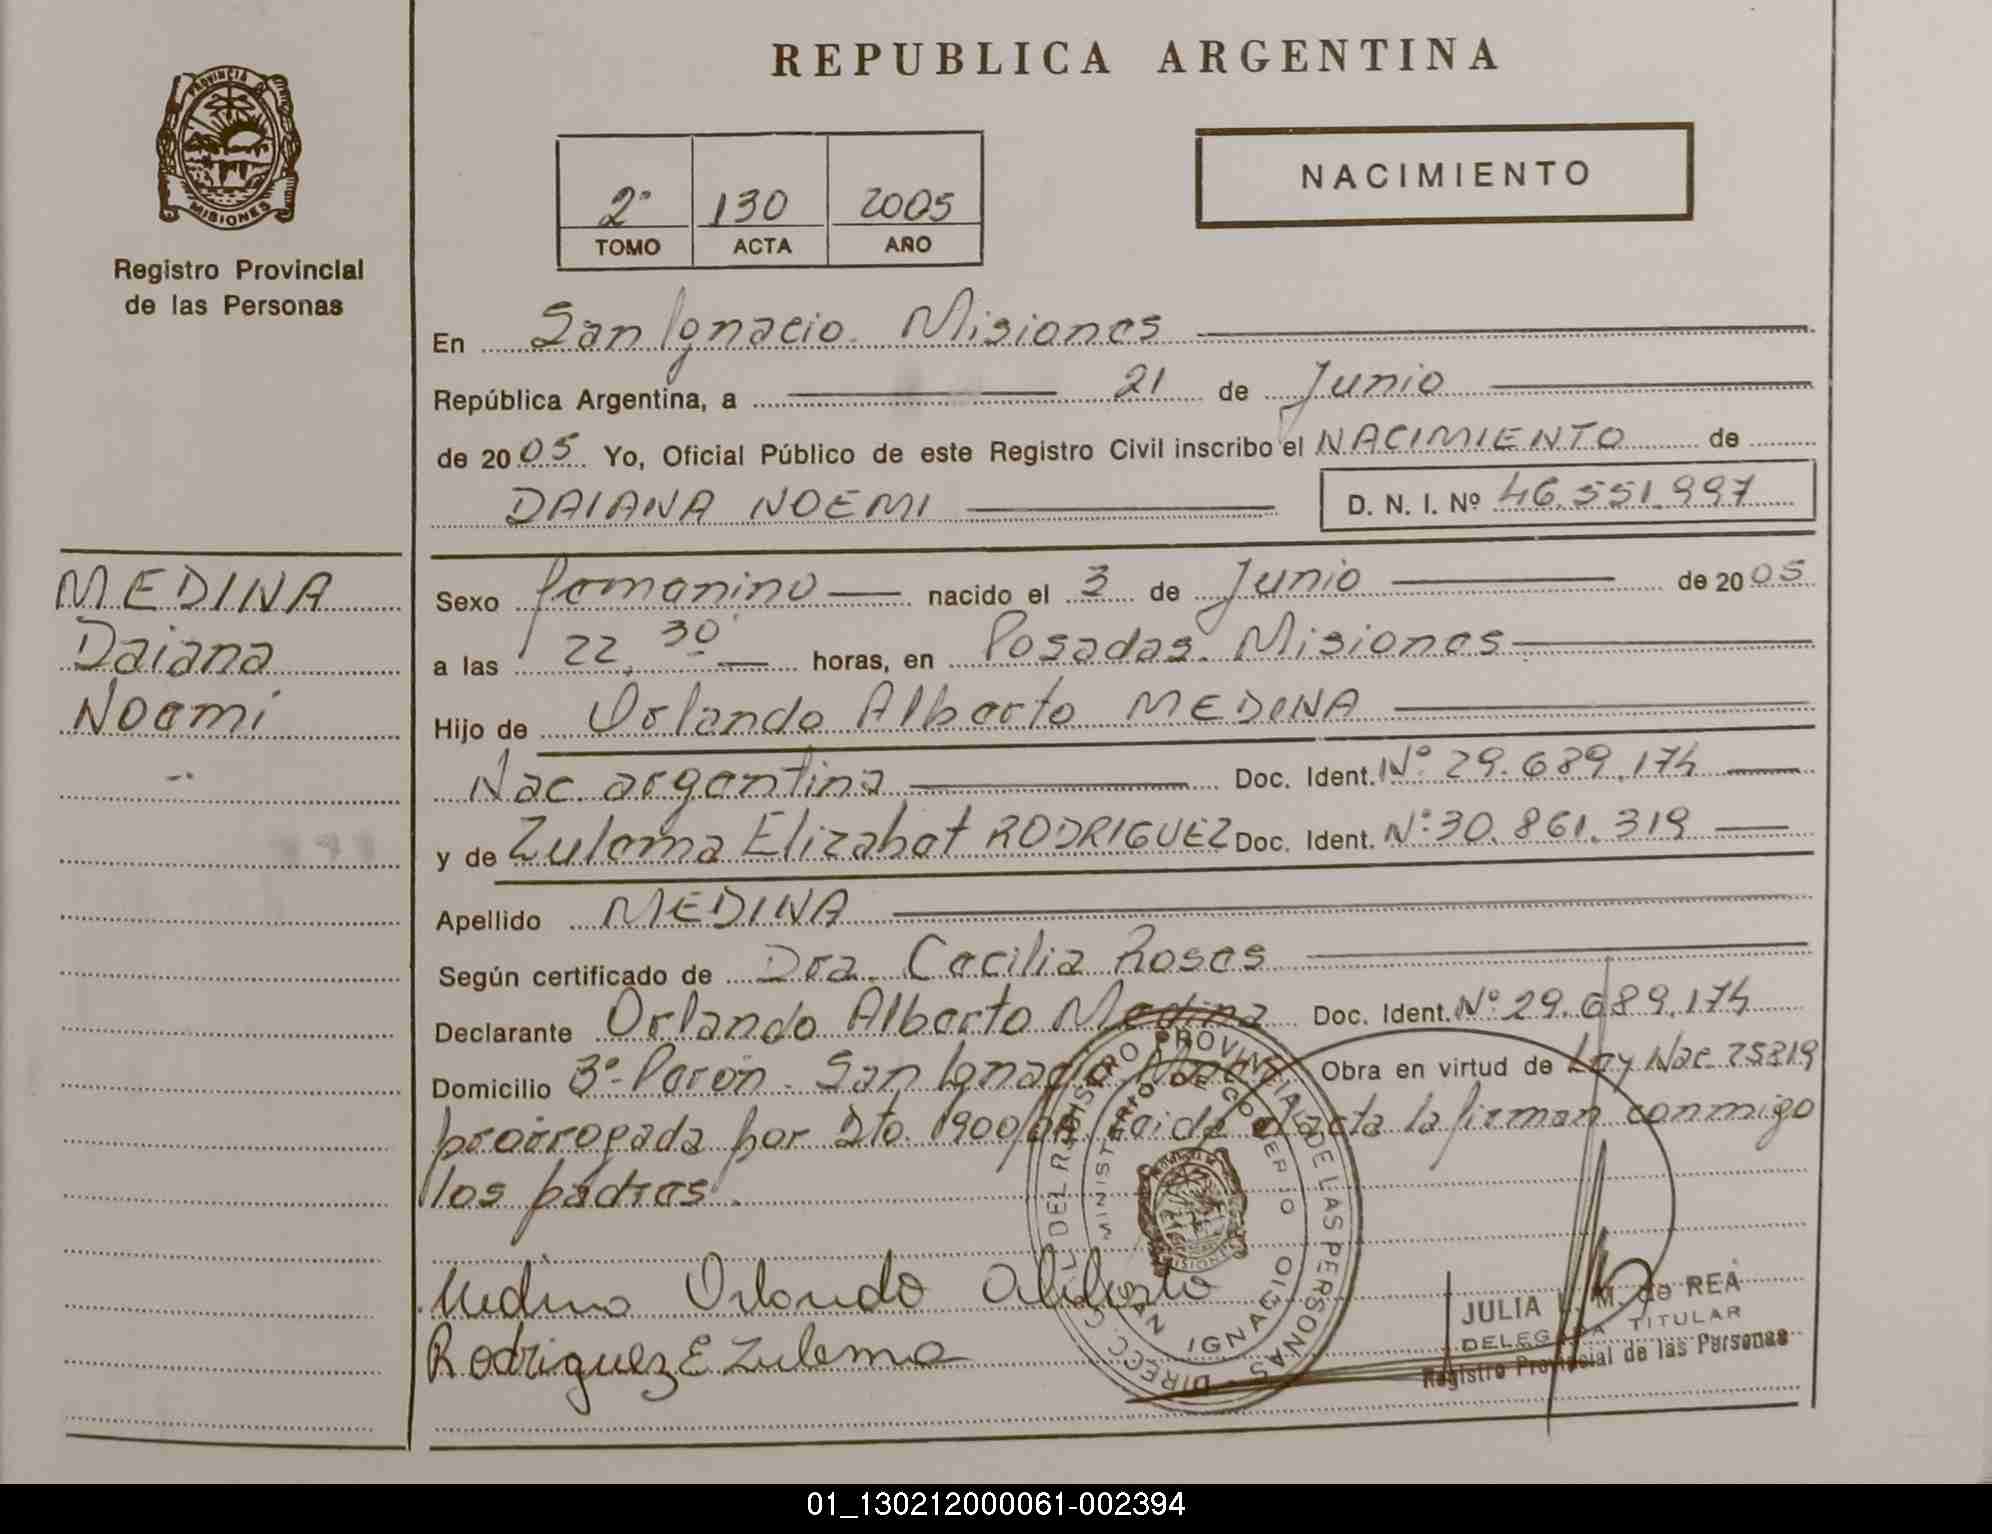 REPUBLICA ARGENTINA
PROVINCIA DE
MISIONES
Registro Provincial
de las Personas
2º 130 2005
TOMO ACTA AÑO
NACIMIENTO
En San Ignacio. Misiones
República Argentina, a 21 de Junio
de 2005 Yo, Oficial Público de este Registro Civil inscribo el NACIMIENTO de
DAIANA NOEMI D. N. I. Nº 46.551.997
MEDINA
Daiana
Noemi
Sexo femenino nacido el 3 de Junio de 2005
a las 22,30 horas, en Posadas. Misiones
Hijo de Orlando Alberto MEDINA
Nac. argentina Doc. Ident. Nº 29.689.174
y de Zulema Elizabet RODRIGUEZ Doc. Ident. Nº 30.861.319
Apellido MEDINA
Según certificado de Dra. Cecilia Roses
Declarante Orlando Alberto Medina Doc. Ident. Nº 29.689.174
Domicilio 3º Perón. San Ignacio Obra en virtud de Ley Nac 25819
prorrogada por Dto. 1900/ Leida el acta la firman conmigo
los padres.
Medina Orlando Alberto
Rodriguez E Zulema
DIRECC. GRAL. DEL REGISTRO PROVINCIAL DE LAS PERSONAS
MINISTERIO DE GOBIERNO
SAN IGNACIO
MISIONES
JULIA M. de REA
DELEGADA TITULAR
Registro Provincial de las Personas
01_130212000061-002394